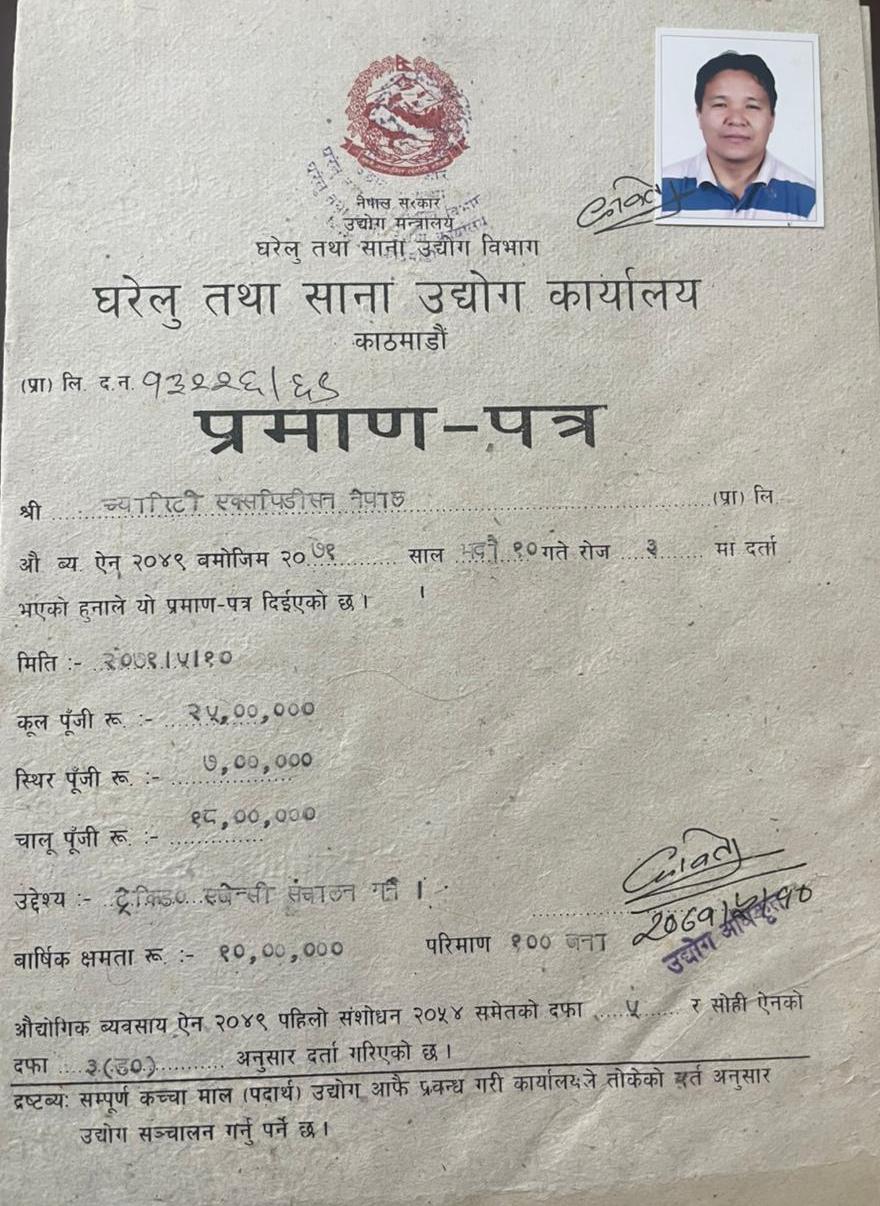 नेपाल सरकार
उद्योग मन्त्रालय
घरेलु तथा साना उद्योग विभाग
घरेलु तथा साना उद्योग कार्यालय
काठमाडौं
(प्रा) लि. द.न. १३२२६/६९
प्रमाण-पत्र
श्री च्यारिटी एक्सपिडीसन नेपाल (प्रा) लि.
औ ब्य. ऐन् २०४९ बमोजिम २०७१ साल भदौ १० गते रोज ३ मा दर्ता
भएको हुनाले यो प्रमाण-पत्र दिईएको छ।
मिति :- २०७१।५।१०
कूल पूँजी रू. :- २५,००,०००
स्थिर पूँजी रू. :- ७,००,०००
चालू पूँजी रू. :- १८,००,०००
उद्देश्य :- ट्रेकिङ एजेन्सी संचालन गर्ने ।
२०७१/५/१०
उद्योग अधिकृत
बार्षिक क्षमता रू. :- १०,००,००० परिमाण १०० जना
औद्योगिक ब्यवसाय ऐन २०४९ पहिलो संशोधन २०५४ समेतको दफा ५ र सोही ऐनको
दफा ३(ङ) अनुसार दर्ता गरिएको छ।
द्रष्टब्य: सम्पूर्ण कच्चा माल (पदार्थ) उद्योग आफै प्रवन्ध गरी कार्यालयले तोकेको शर्त अनुसार
उद्योग सञ्चालन गर्नु पर्ने छ।